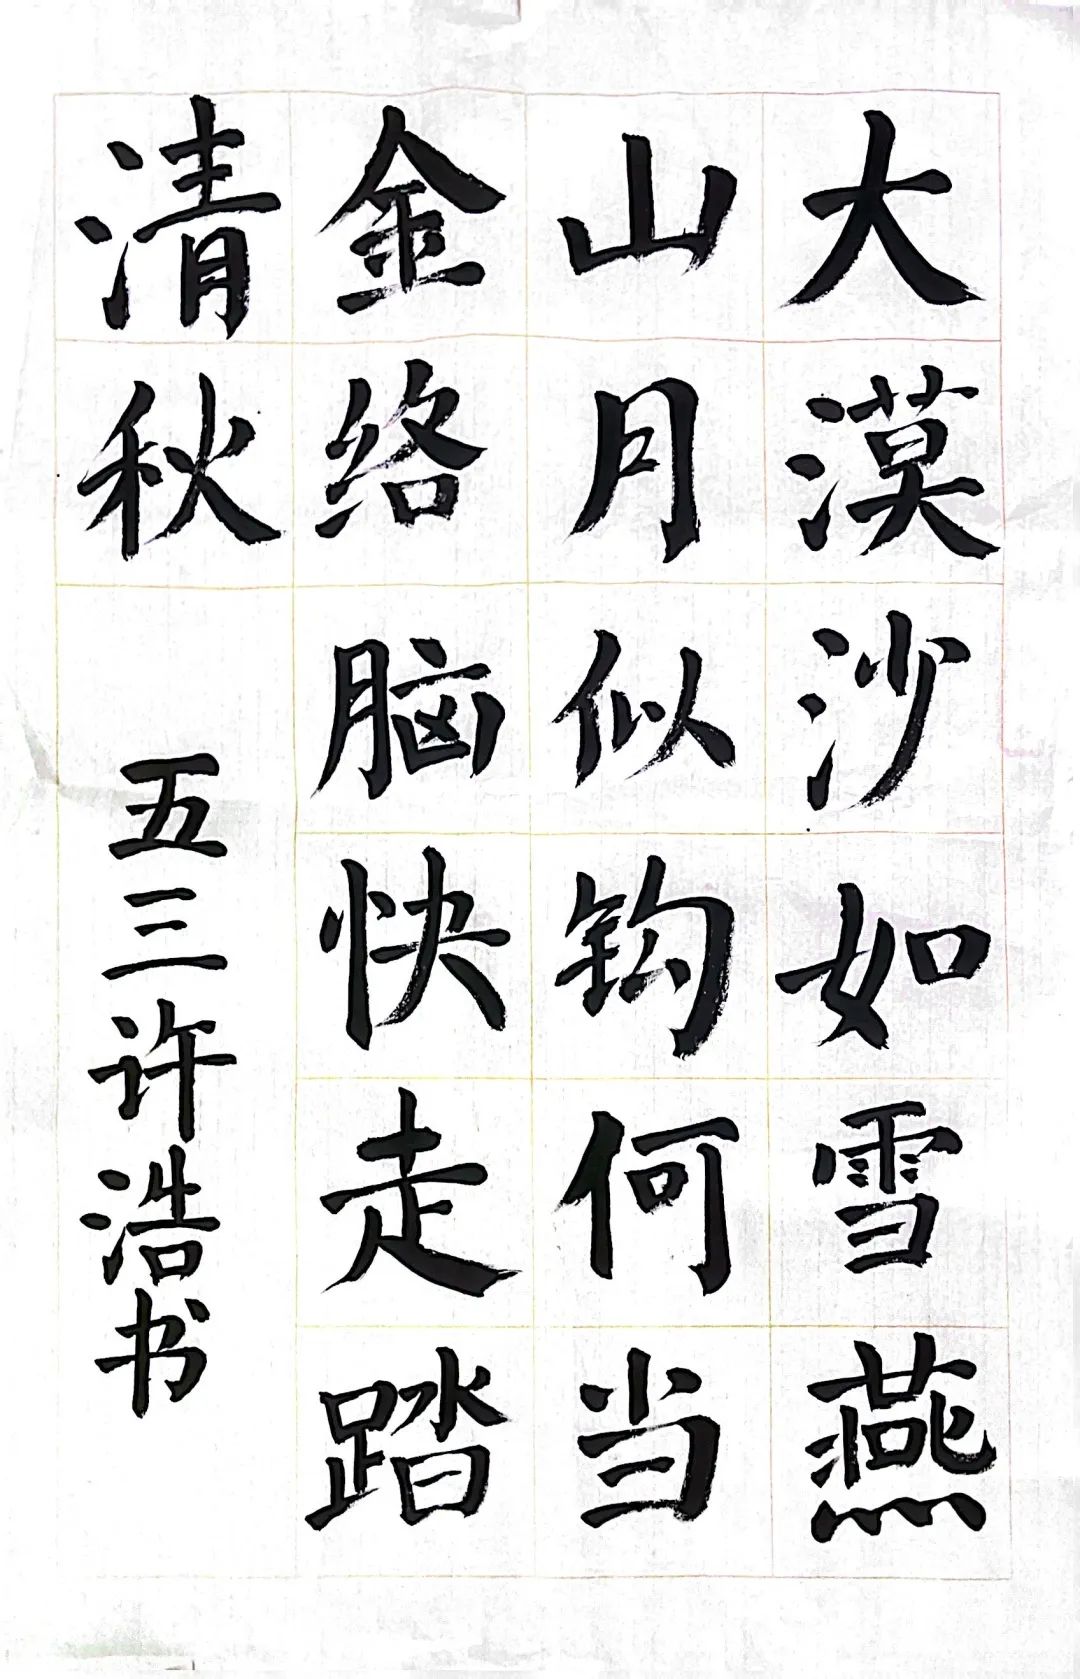 大漠沙如雪燕
山月似钩何当
金络脑快走踏
清秋
五三许浩书